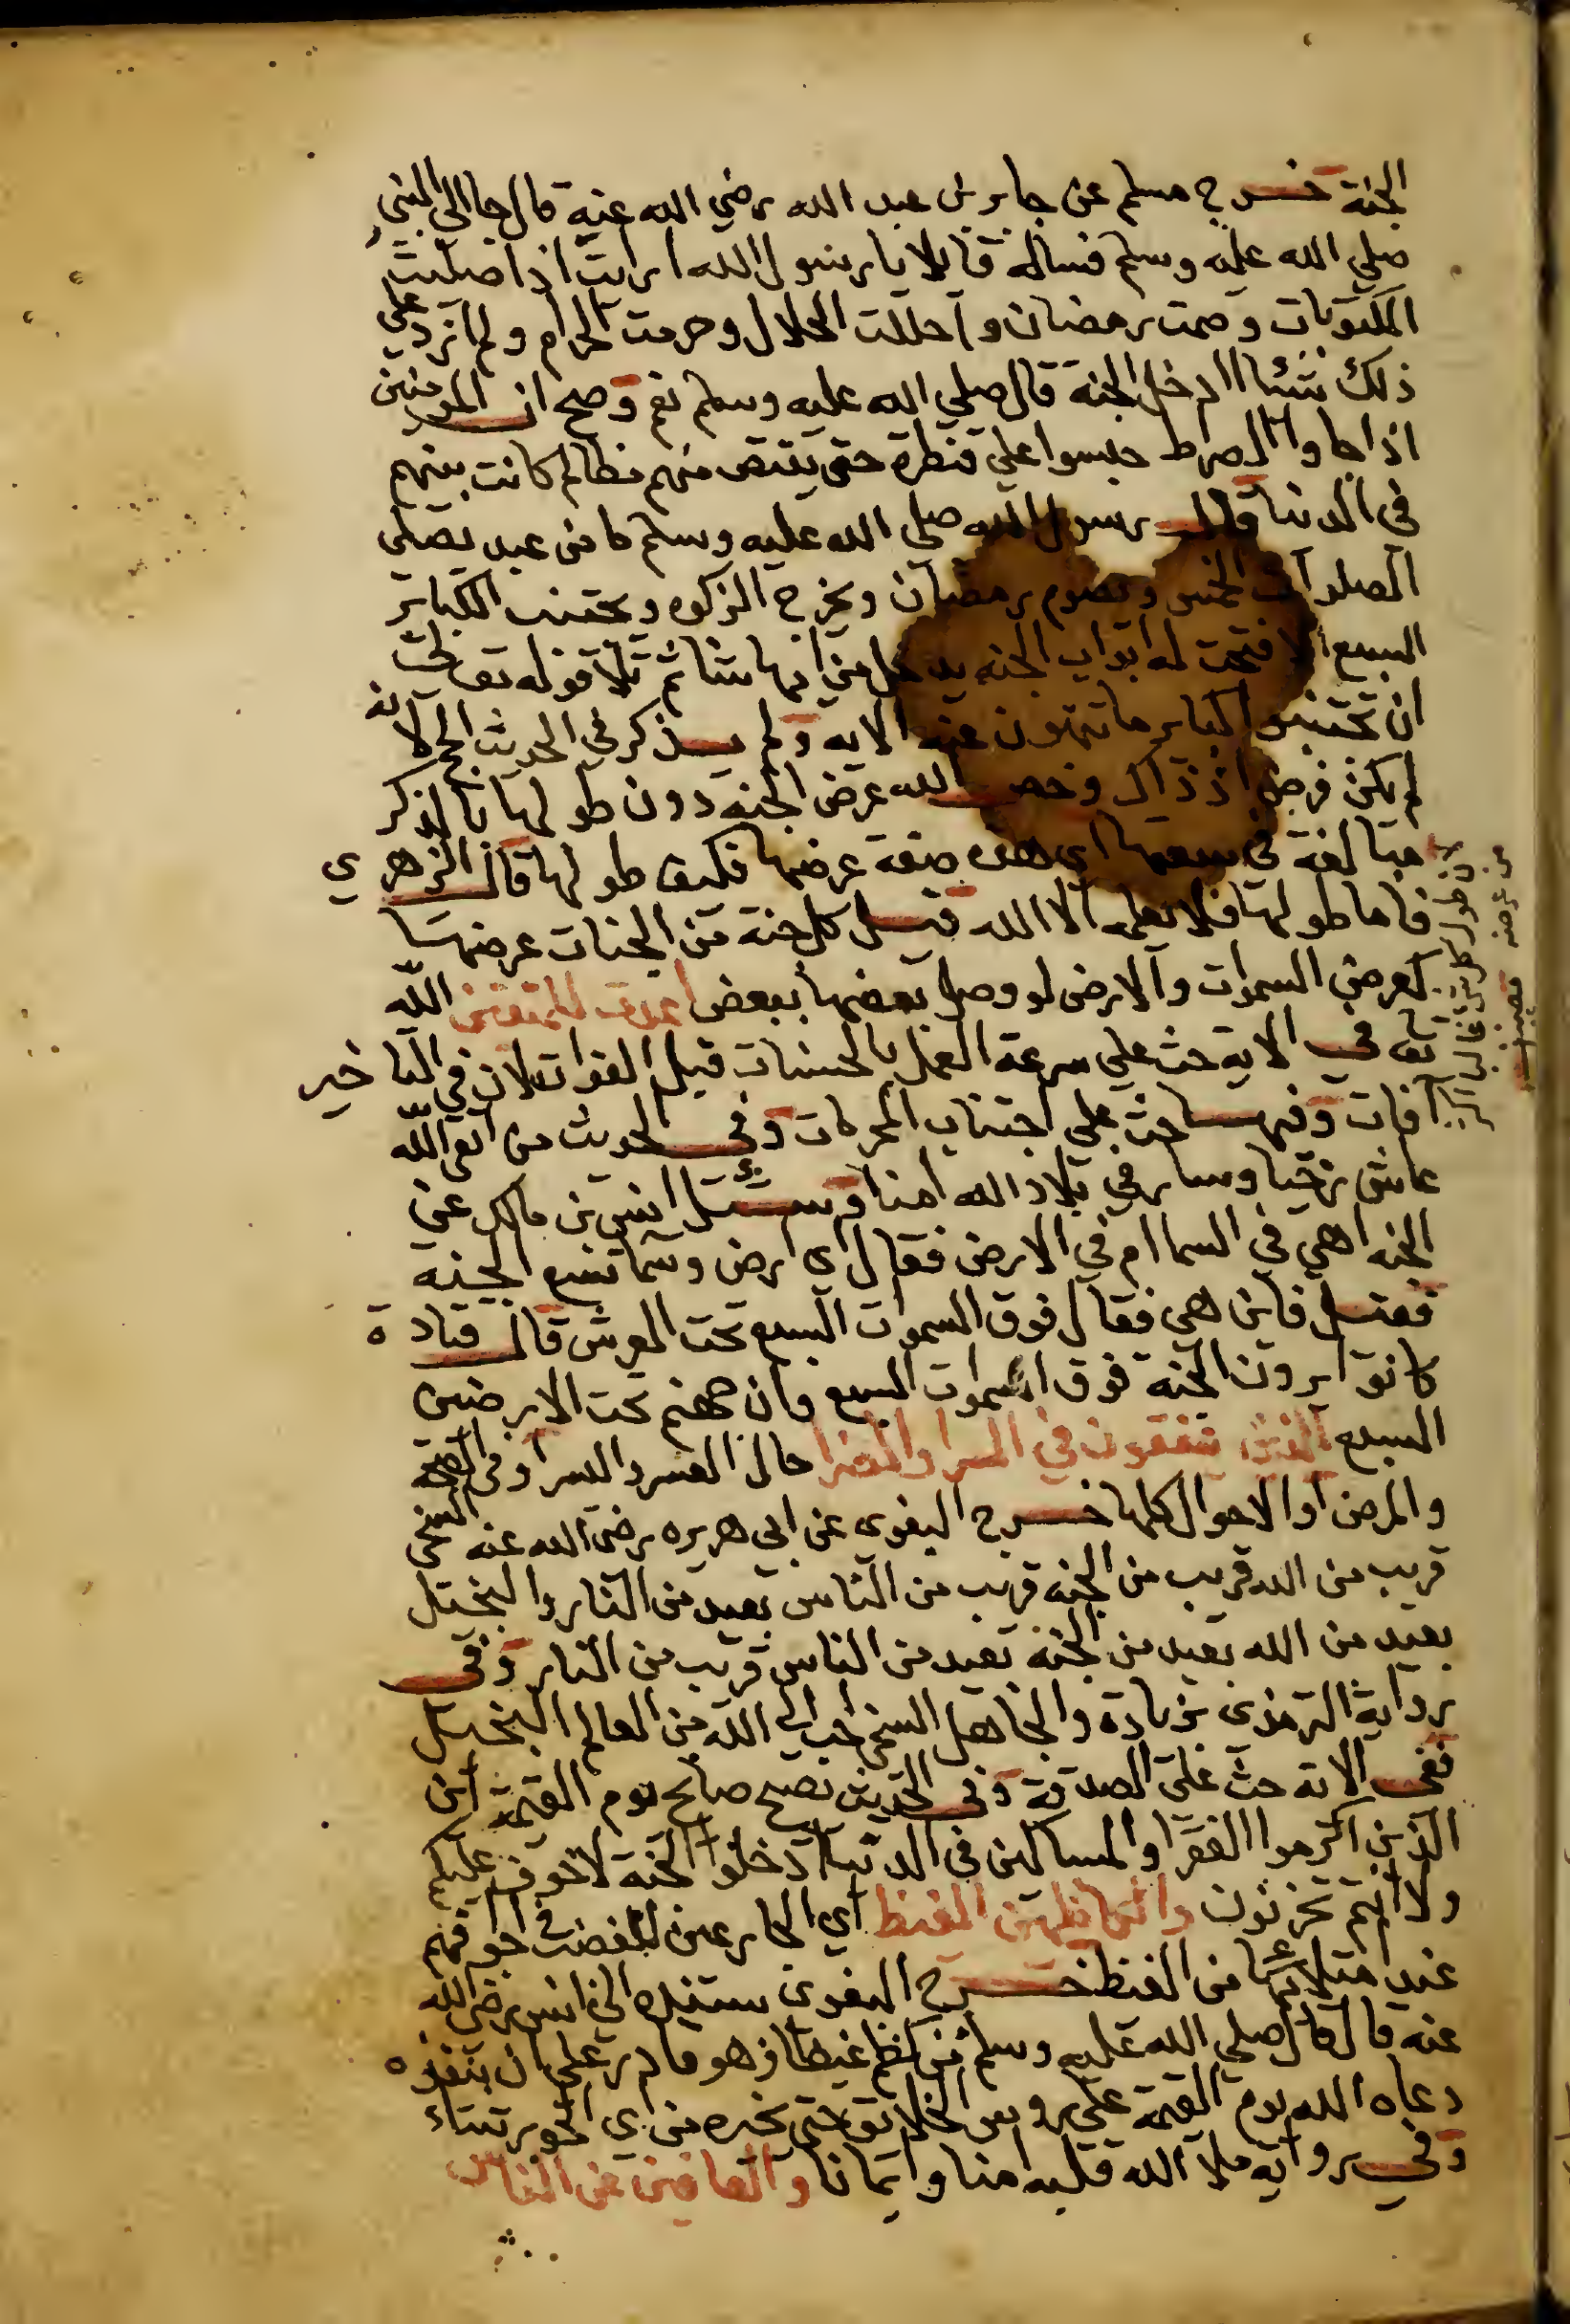 الجنة خرج مسلم عن جابر بن عبد الله رضي الله عنه قال جا الى النبي
صلي الله عليه وسلم فساله قايلا يا رسول الله ارايت اذا صليت
المكتوبات وصمت رمضان واحللت الحلال وحرمت الحرام ولم ازد علي
ذلك شئا اادخل الجنة قال صلي الله عليه وسلم نعم وصح ان المومنين
اذا جاوا الصراط حبسوا علي قنطرة حتى يقتص منهم مظالم كانت بينهم
في الدنيا قال رسول الله صلي الله عليه وسلم ما من عبد يصلي
الصلوات الخمس ويصوم رمضان ويخرج الزكوه ويجتنب الكباير
السبع الا فتحت له ابواب الجنه يدخل من ايها شا ثم تلا قوله تعالى
ان تجتنبوا كباير ما تنهون عنه الايه ولم يذكر في الحديث الحج لانه
لم يكن فرض اذ ذاك وخص الله عرض الجنه دون طولها بالذكر
مبالغة في سعتها اي هذه صفة عرضها فكيف طولها قال الزهري
فاما طولها فلا يعلمه الا الله قيل كل جنة من الجنات عرضها
كعرض السموات والارض لو وصل بعضها ببعض اعدت للمتقين الله
تعا في الاية حث علي سرعة العمل بالحسنات قبل الفوات لان في التاخير
افات وفيها حث علي اجتناب المحرمات وفي الحديث من اتقى الله
عاش رخيا وسار في بلاد الله امنا وسئل انس بن مالك عن
الجنه اهي في السما ام في الارض فقال اى ارض وسما تسع الجنه
فقيل فاين هي فقال فوق السموات السبع تحت العرش قال قتادة
كانوا يرون الجنة فوق السموات السبع وان جهنم تحت الارضين
السبع الذين ينفقون في السرا والضرا حال العسر واليسر او في الصحة
والمرض او الاحوال كلها خرج البغوى عن ابي هريره رضي الله عنه السخي
قريب من الله قريب من الجنه قريب من الناس بعيد من النار والبخيل
بعيد من الله بعيد من الجنة بعيد من الناس قريب من النار وفي
رواية الترمذي بزيادة والجاهل السخي احب الى الله من العالم البخيل
ففي الاية حث على الصدقة وفي الحديث يصيح صايح يوم القيمة اين
الذين اكرموا الفقرا والمساكين في الدنيا ادخلوا الجنة لا خوف عليكم
ولا انتم تحزنون والكاظمين الغيظ اي الجارعين الغضب في اجوافهم
عند امتلائها من الغيظ خرج البغوي بسنده الى انس رضي الله
عنه قال قال صلي الله عليه وسلم من كظم غيظا وهو قادر على ان ينفذه
دعاه الله يوم القيمة علي روس الخلايق حتى يخيره من اي الحور شاء
وفي روايه ملا الله قلبه امنا وايمانا والعافين عن الناس